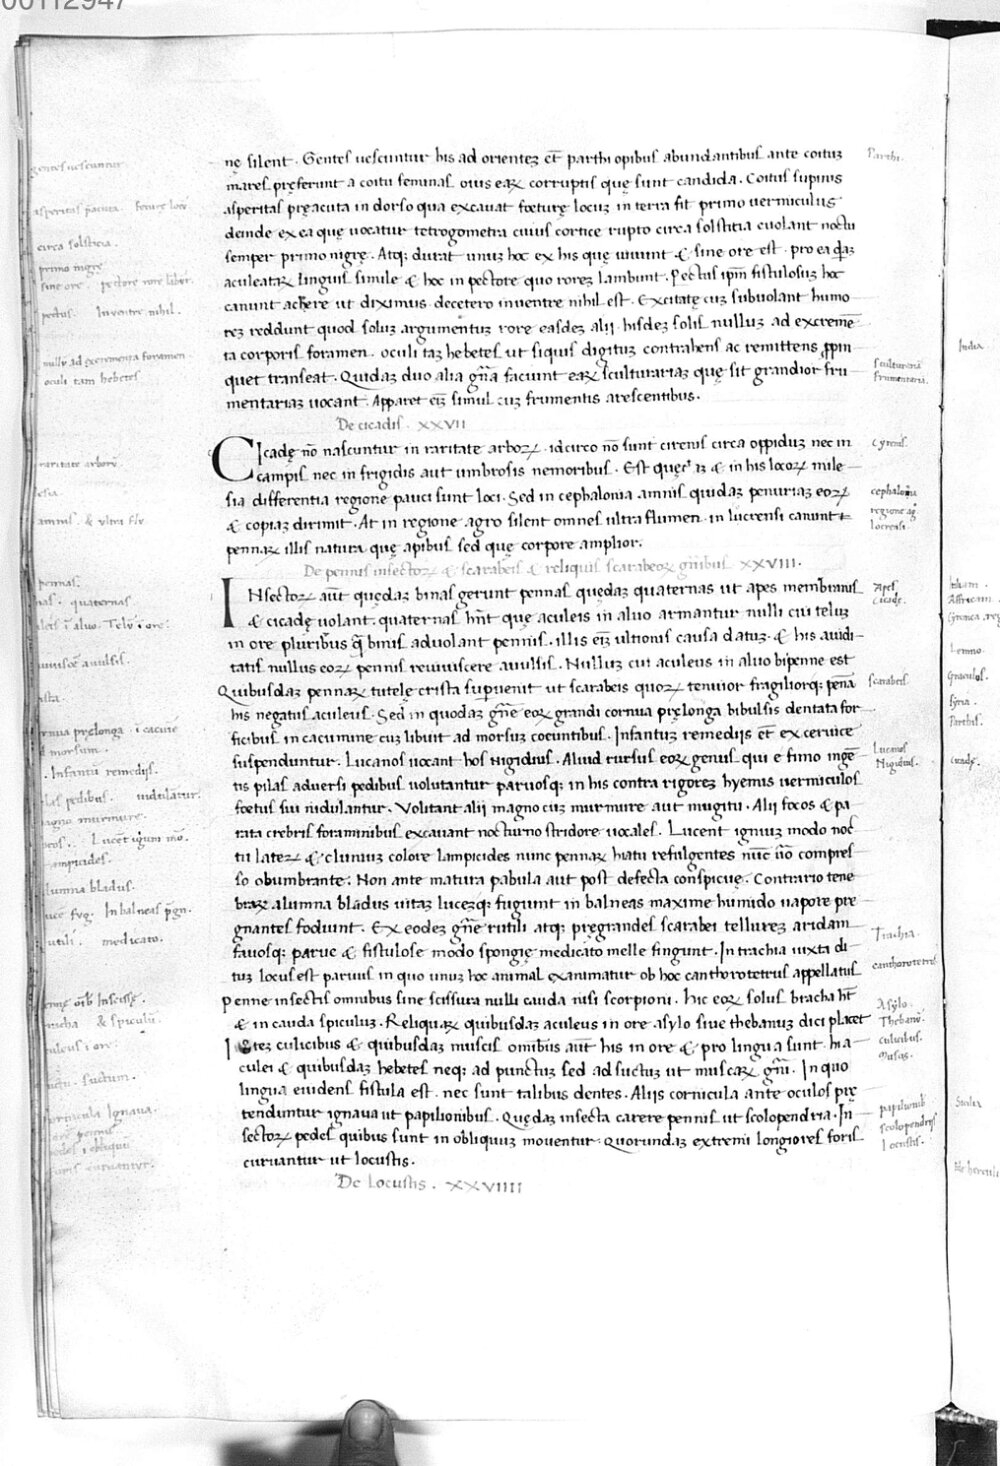 00112947
nę silent. Gentes uescuntur his ad orientez et̄ parthi opibus abundantibus ante coituz
mares pręferunt a coitu feminas ouis eaꝝ corruptis quę sunt candida. Coitus supinis
asperitas pręacuta in dorso qua excauat foeturę locuz in terra fit primo uermiculus
deinde ex ea quę uocatur tetrogometra cuius cortice rupto circa solstitia euolant noctu
semper primo nigrę. Atqꝫ durat unuz hoc ex his quę uiuunt & sine ore est. pro ea
aculeataꝝ linguis simile & hoc in pectore quo rorez lambunt. Pectus ip̄m fistulosuz hoc
canunt achere ut diximus. decetero inuentre nihil est. Excitatę cuz subuolant humo
rez reddunt quod soluz argumentuz rore easdez alii. hisdez solis nulluz ad excremē
ta corporis foramen. oculi taz hebetes ut siquis digituz contrahens ac remittens ꝓpin
quet transeat. Quidaz duo alia gn̄a faciunt eaꝝ sculturariaz quę sit grandior fru
mentariaz uocant. Apparet eīz simul cuz frumentis arescentibus.
De cicadis. XXVII
Cicadę nō nascuntur in raritate arboꝝ. idcirco nō sunt cirenis circa oppiduz nec in
campis nec in frigidis aut umbrosis nemoribus. Est & in his locoꝝ mile
sia differentia regione pauci sunt loci. Sed in cephalonia amnis quidaz penuriaz eoꝝ
& copiaz dirimit. At in regione agro silent omnes ultra flumen. in lucrensi canunt
pennaꝝ illis natura quę apibus sed quę corpore amplior.
De pennis insectoꝝ & scarabeis & reliquis scarabeoꝝ gn̄ibus XXVIII.
INsectoꝝ aūt quędaz binas gerunt pennas quędaz quaternas ut apes membranis
& cicadę uolant. quaternas hn̄t quę aculeis in aluo armantur nulli cui teluz
in ore pluribus q̄ binis aduolant pennis. illis eīz ultionis causa datuz. & his auidi
tatis nullus eoꝝ pennis reuiuiscere auulsis. Nulluz cui aculeus in aluo bipenne est
Quibusdaz pennaꝝ tutelę crista superuenit ut scarabeis quoꝝ tenuior fragiliorqꝫ penā
his negatus aculeus. Sed in quodaz gn̄e eoꝝ grandi cornua pręlonga bibulsis dentata for
ficibus in cacumine cuz libuit ad morsuz coeuntibus. Infantuz remedijs et̄ ex ceruice
suspenduntur. Lucanos uocant hos Nigidius. Aliud rursus eoꝝ genus qui e fimo ingē
tis pilas aduersi pedibus uolutantur paruosqꝫ in his contra rigorez hyemis uermiculos
foetus sui nidulantur. Volitant alii magno cuz murmure aut mugitu. Alii focos & pa
rata crebris foraminibus excauant nocturno stridore uocales. Lucent igniuz modo noc
tu laterꝝ & cluniuz colore lampicides nunc pennaꝝ hiatu refulgentes nūc uō compres
so obumbrante. Non ante matura pabula aut post defecta conspicuę. Contrario tene
braꝝ alumna bladus uitaz lucezqꝫ fugiunt in balneas maxime humido uapore pre
gnantes fodiunt. Ex eodez gn̄e rutili atqꝫ pręgrandes scarabei tellurez aridam
fauosqꝫ paruę & fistulose modo spongię medicato melle fingunt. In trachia iuxta di
tuz locus est paruus in quo unuz hoc animal exanimatur ob hoc canthorotetrus appellatus
Penne insectis omnibus sine scissura nulli cauda nisi scorpioni. hic eoꝝ solus bracha h̄t
& in cauda spiculuz. Reliquaꝝ quibusdaz aculeus in ore asylo siue thebanuz dici placet
Itez culicibus & quibusdaz muscis omībus aūt his in ore & pro lingua sunt. hi a
culei & quibusdaz hebetes neqꝫ ad punctuz sed ad suctuz ut muscaꝝ gn̄i. In quo
lingua euidens fistula est. nec sunt talibus dentes. Aliis cornicula ante oculos prę
tenduntur ignaua ut papilionibus. Quędaz insecta carere pennis ut scolopendria. In
sectoꝝ pedes quibus sunt in obliquuz mouentur. quorundaz extremi longiores foris
curuantur ut locustis.
De Locustis. XXVIIII
gentes uescuntur
circa solsticia.
primo nigrę
pectus. Inuentre nihil.
nullū ad excrementa foramen
oculi tam hebetes
raritate arborū
pennas.
quaternas
. Infantū remedijs.
alumna bladus.
medicato.
suctum.
cornicula Ignaua.
Parthi.
sculturaria
frumentaria.
Cyrenis.
cephalonia
locrensi
Apes
cicadę.
scarabeis
Lucanos
Nigidius.
Trachia.
canthorotetrus
Asylo.
Thebanū.
culicibus.
Musas.
papilionib
scolopendrijs
Locustis.
India
Lemno
Graculos.
Syria.
Parthis.
cicadę.